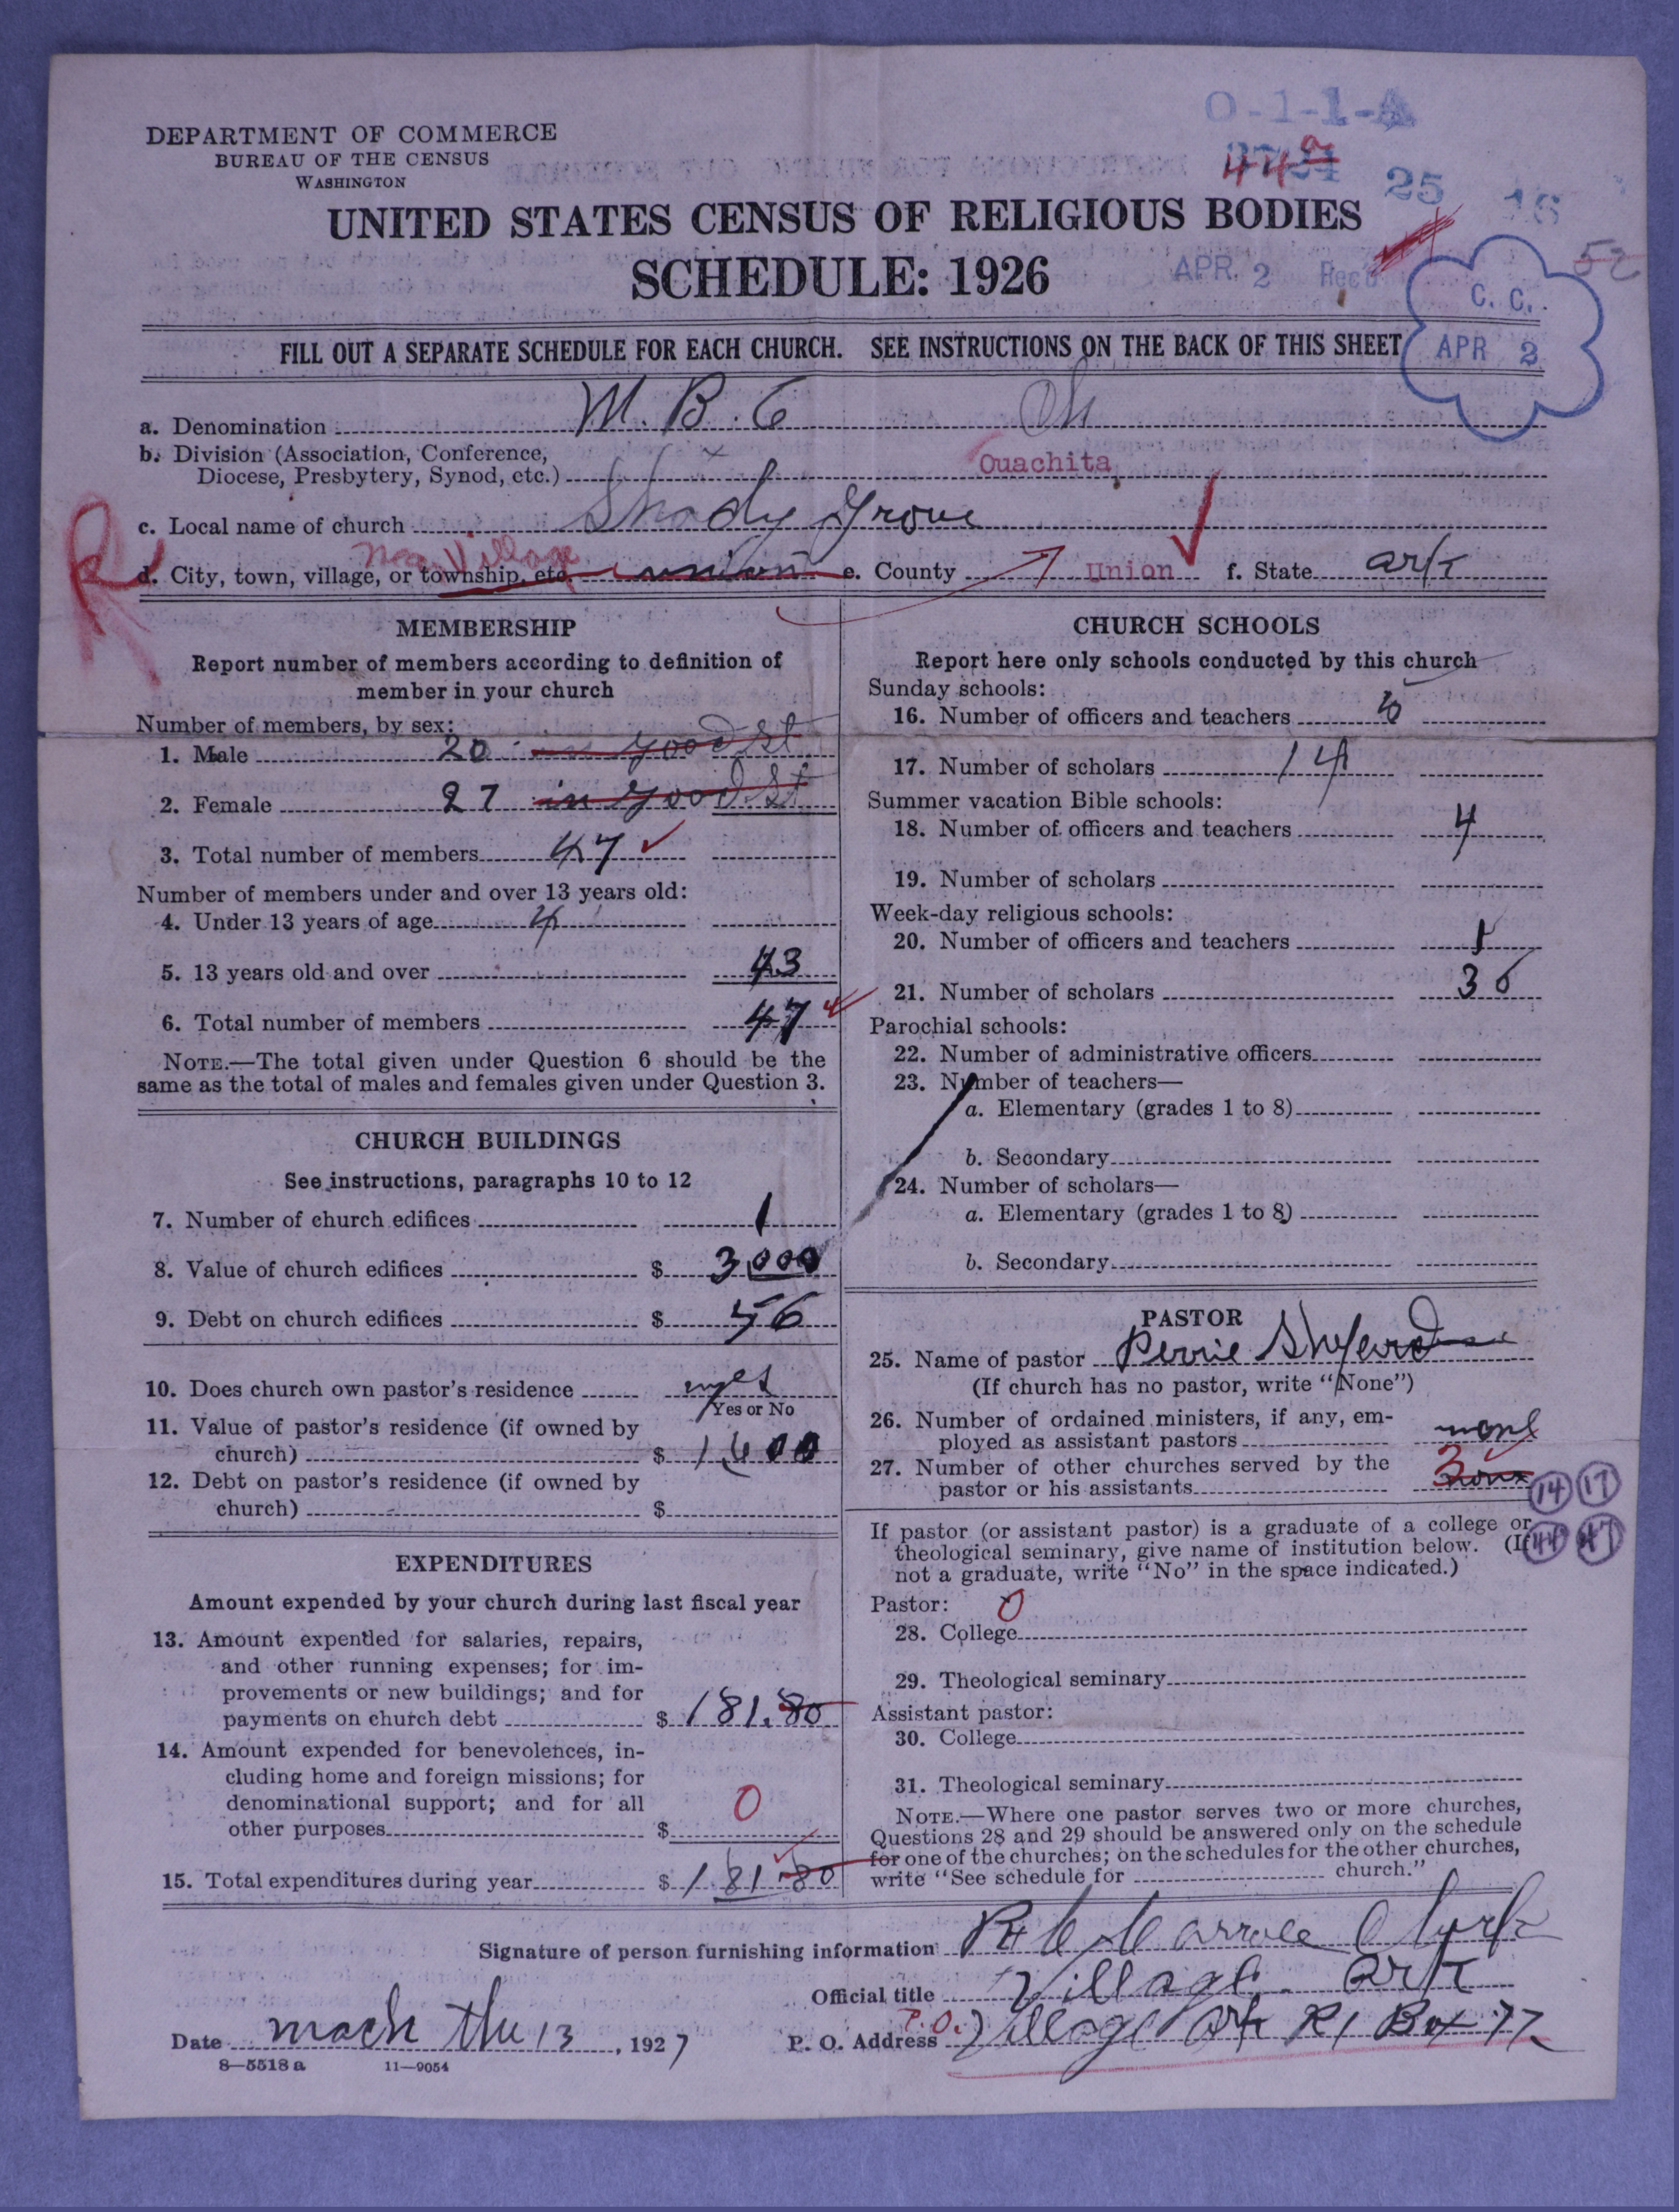 O-1-1-A
DEPARTMENT OF COMMERCE
BUREAU OF THE CENSUS
WASHINGTON
44
25 16
UNITED STATES CENSUS OF RELIGIOUS BODIES
52
SCHEDULE: 1926
APR. 2 Rec'd
C. C.
APR 2
FILL OUT A SEPARATE SCHEDULE FOR EACH CHURCH. SEE INSTRUCTIONS ON THE BACK OF THIS SHEET
a. Denomination M. B. C Ch
b. Division (Association, Conference,
Diocese, Presbytery, Synod, etc.) Ouachita
c. Local name of church Shady Grove
near Village
d. City, town, village, or township, etc. union e. County Union f. State ark
MEMBERSHIP
Report number of members according to definition of
member in your church
Number of members, by sex:
1. Male 20 in good st
2. Female 27 in good st
3. Total number of members 47
Number of members under and over 13 years old:
4. Under 13 years of age 4
5. 13 years old and over 43
6. Total number of members 47
NOTE.—The total given under Question 6 should be the
same as the total of males and females given under Question 3.
CHURCH BUILDINGS
See instructions, paragraphs 10 to 12
7. Number of church edifices 1
8. Value of church edifices $ 3,000
9. Debt on church edifices $ 56
10. Does church own pastor's residence yes
Yes or No
11. Value of pastor's residence (if owned by
church) $ 1,600
12. Debt on pastor's residence (if owned by
church) $
EXPENDITURES
Amount expended by your church during last fiscal year
13. Amount expended for salaries, repairs,
and other running expenses; for im-
provements or new buildings; and for
payments on church debt $ 181.80
14. Amount expended for benevolences, in-
cluding home and foreign missions; for
denominational support; and for all
other purposes $ 0
15. Total expenditures during year $ 181.80
CHURCH SCHOOLS
Report here only schools conducted by this church
Sunday schools:
16. Number of officers and teachers
17. Number of scholars 14
Summer vacation Bible schools:
18. Number of officers and teachers 4
19. Number of scholars
Week-day religious schools:
20. Number of officers and teachers 1
21. Number of scholars 36
Parochial schools:
22. Number of administrative officers
23. Number of teachers—
a. Elementary (grades 1 to 8)
b. Secondary
24. Number of scholars—
a. Elementary (grades 1 to 8)
b. Secondary
PASTOR
25. Name of pastor Perrie Shyeard
(If church has no pastor, write "None")
26. Number of ordained ministers, if any, em-
ployed as assistant pastors none
27. Number of other churches served by the
pastor or his assistants 3 none
14 17
44 47
If pastor (or assistant pastor) is a graduate of a college or
theological seminary, give name of institution below. (If
not a graduate, write "No" in the space indicated.)
Pastor: 0
28. College
29. Theological seminary
Assistant pastor:
30. College
31. Theological seminary
NOTE.—Where one pastor serves two or more churches,
Questions 28 and 29 should be answered only on the schedule
for one of the churches; on the schedules for the other churches,
write "See schedule for church."
Signature of person furnishing information Clurk
Official title Village Ark
Date mach the 13, 1927 P. O. Address P.O. Village Ark R1 Box 77
8—5518 a 11—9054